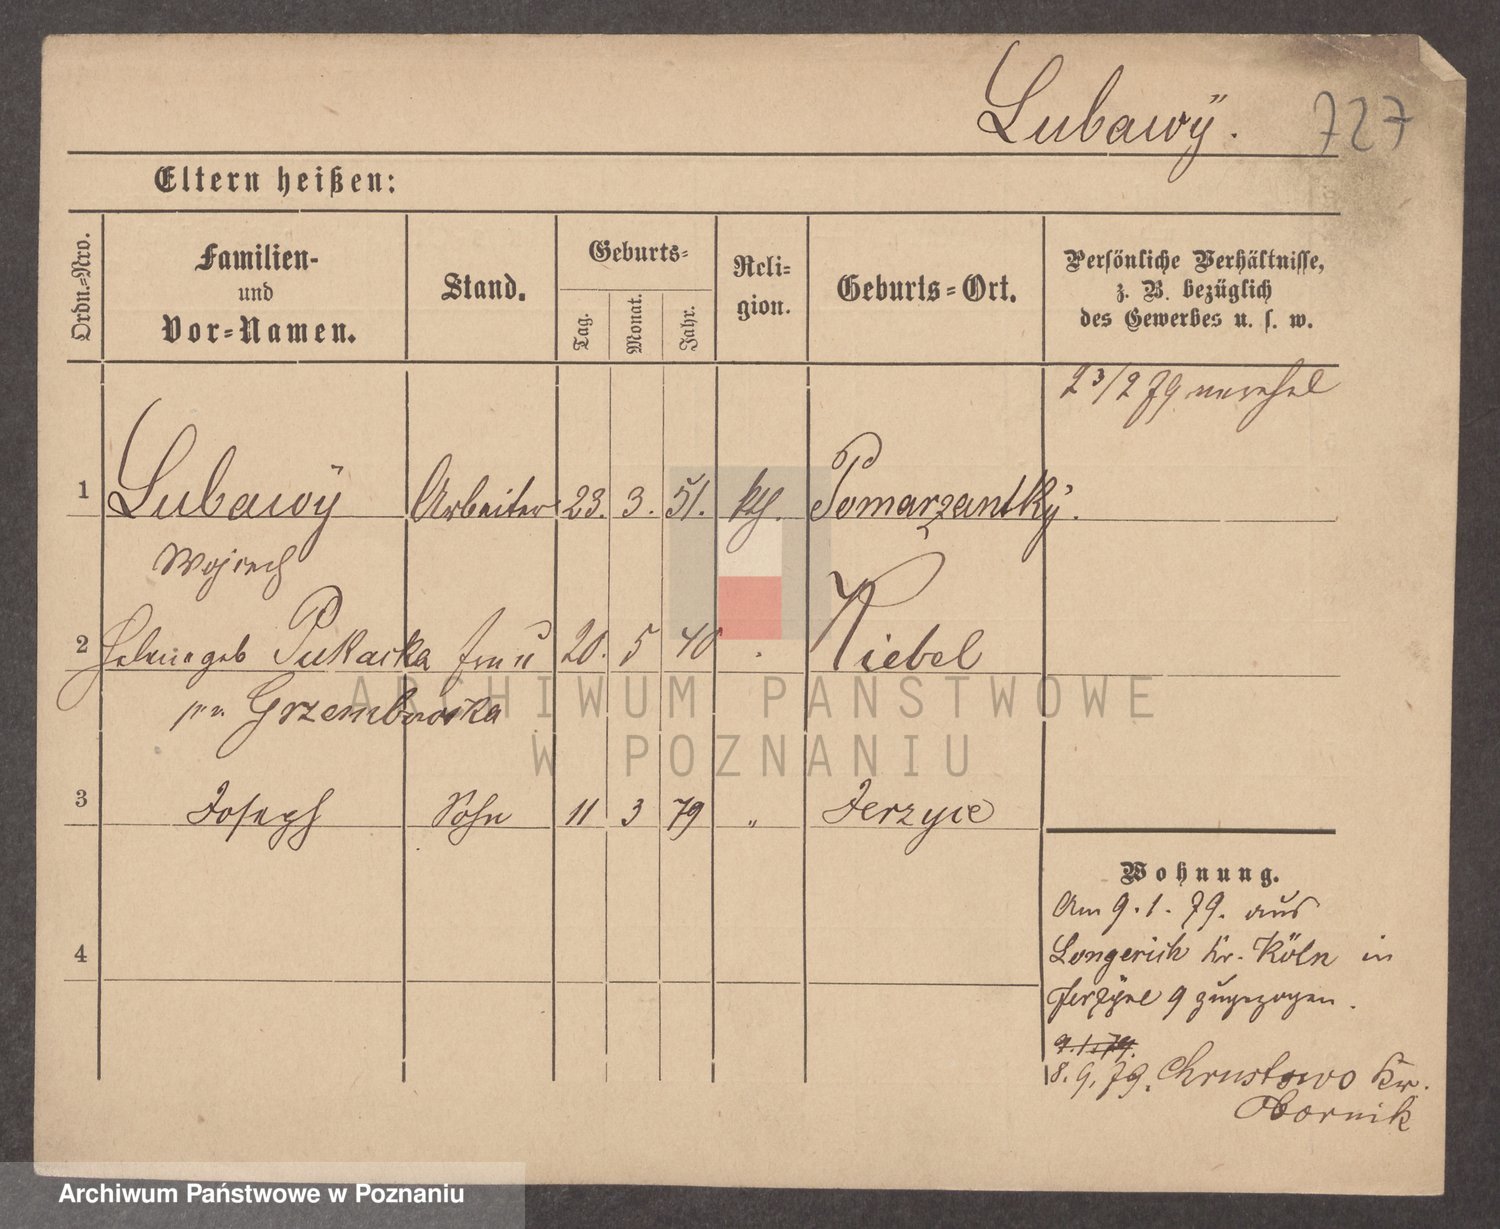 Lubawÿ.
727
Eltern heißen:
Ordn.-Nro.
Familien-
und
Vor-Namen.
Stand.
Geburts-
Tag.
Monat.
Jahr.
Reli-
gion.
Geburts-Ort.
Persönliche Verhältnisse,
z. B. bezüglich
des Gewerbes u. s. w.
23/2 79
1 Lubawÿ Arbeiter 23. 3. 51. kth. Pomarzantkÿ.
Wojciech
2 geb Pukacka Frau 20. 5 40 . Kiebel
Grzembowska
3 Joseph Sohn 11 3 79 " Jerzyce
4
Wohnung.
Am 9. 1. 79. aus
Longerich Kr. Köln in
9 zugezogen.
9.1.79.
8. 9. 79. Chrustowo Kr.
Obornik
ARCHIWUM PAŃSTWOWE
W POZNANIU
Archiwum Państwowe w Poznaniu